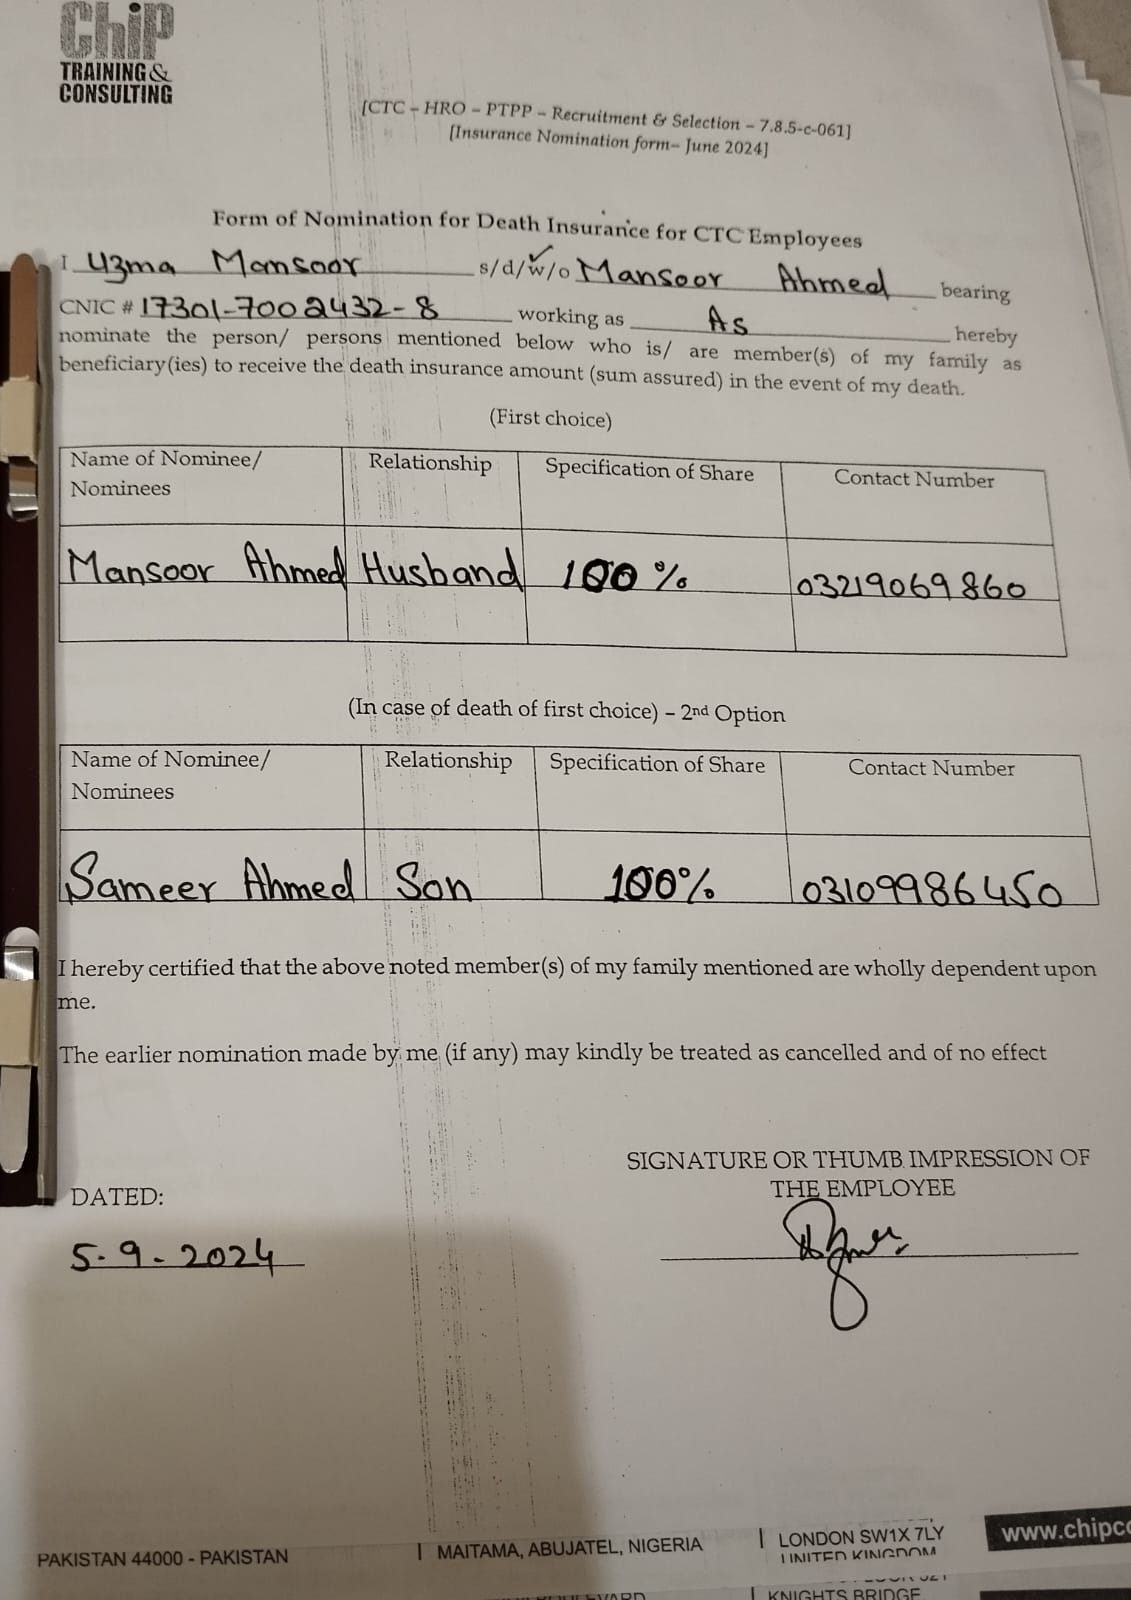 Chip
TRAINING &
CONSULTING
[CTC – HRO – PTPP – Recruitment & Selection – 7.8.5-c-061]
[Insurance Nomination form– June 2024]
Form of Nomination for Death Insurance for CTC Employees
I Uzma Mansoor s/d/w/o Mansoor Ahmed bearing
CNIC # 17301-7002432-8 working as As hereby
nominate the person/ persons mentioned below who is/ are member(s) of my family as
beneficiary(ies) to receive the death insurance amount (sum assured) in the event of my death.
(First choice)
Name of Nominee/ Relationship Specification of Share Contact Number
Nominees
Mansoor Ahmed Husband 100% 03219069860
(In case of death of first choice) – 2nd Option
Name of Nominee/ Relationship Specification of Share Contact Number
Nominees
Sameer Ahmed Son 100% 03109986450
I hereby certified that the above noted member(s) of my family mentioned are wholly dependent upon
me.
The earlier nomination made by me (if any) may kindly be treated as cancelled and of no effect
SIGNATURE OR THUMB IMPRESSION OF
THE EMPLOYEE
DATED:
5-9-2024
PAKISTAN 44000 - PAKISTAN | MAITAMA, ABUJATEL, NIGERIA | LONDON SW1X 7LY www.chipc
UNITED KINGDOM
KNIGHTS BRIDGE